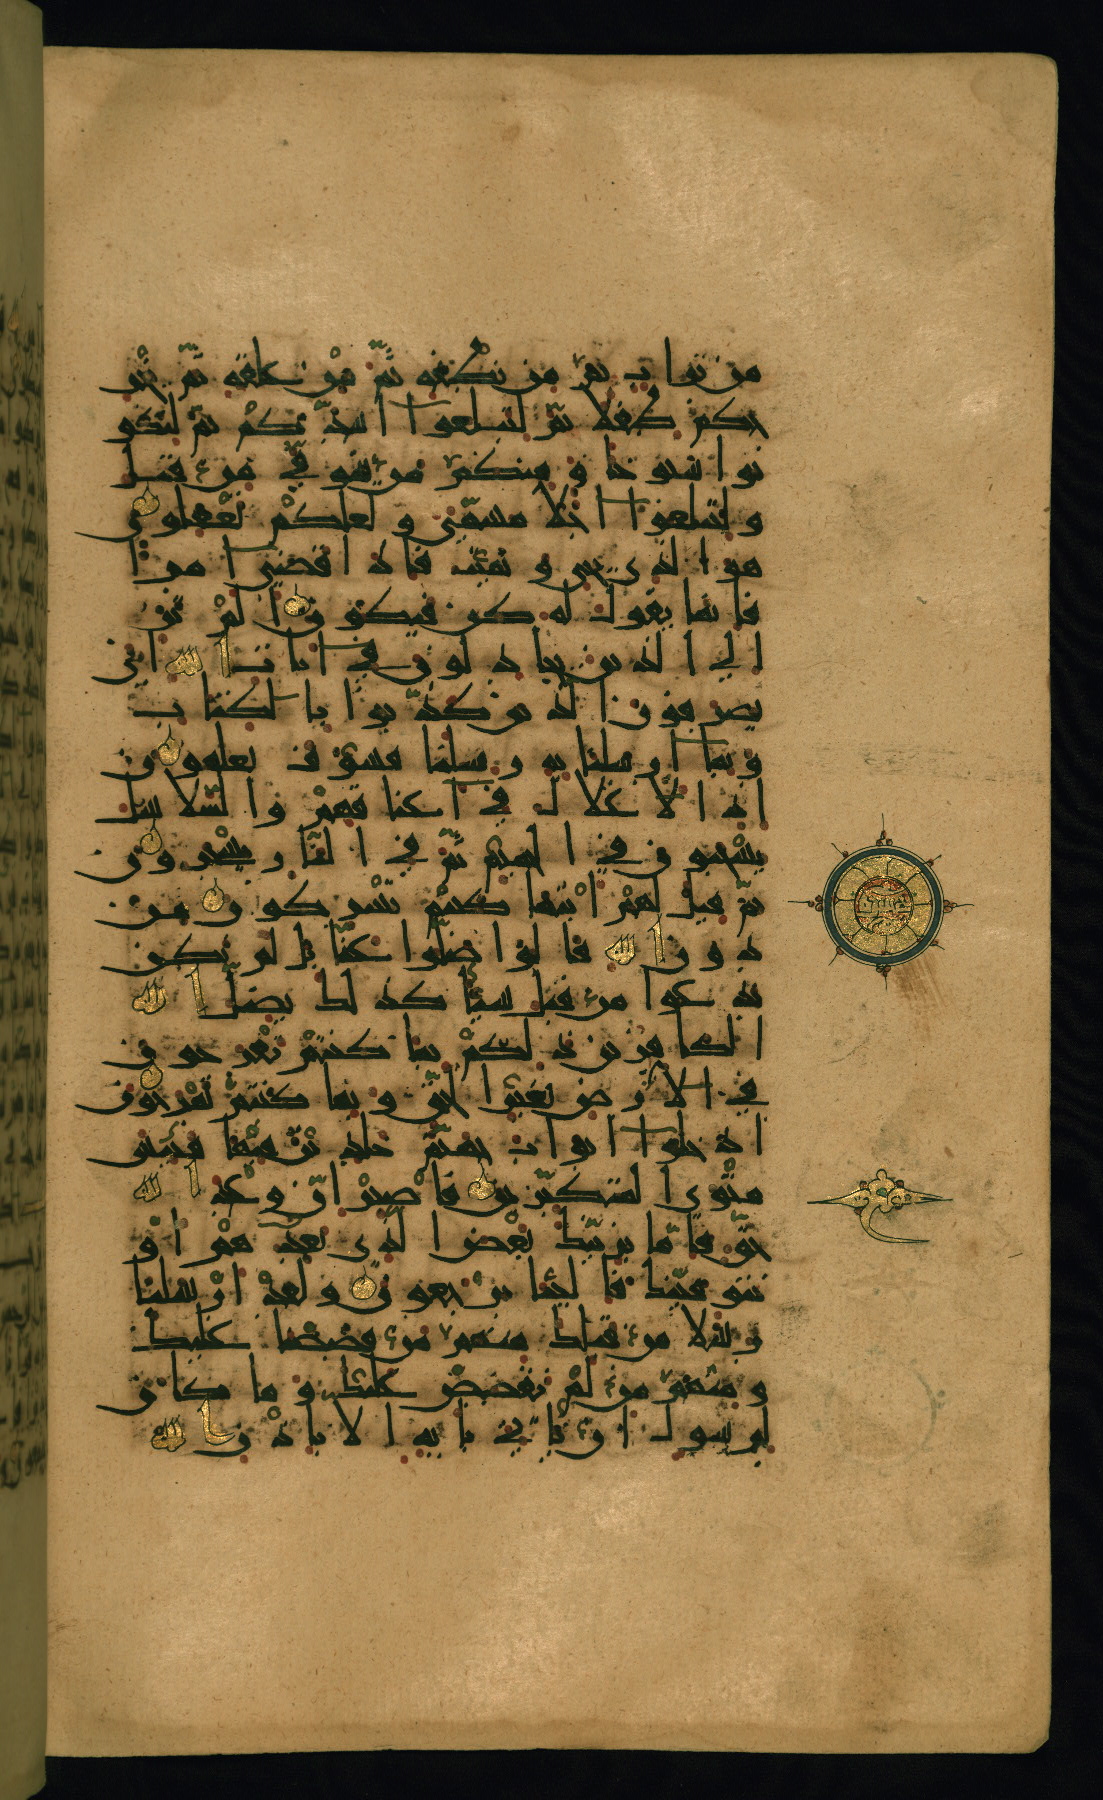 من تراب ثم من نطفة ثم من علقة ثم يخر
جكم طفلا ثم لتبلغوا اشدكم ثم لتكو
نوا شيوخا ومنكم من يتوفى من قبل
ولتبلغوا اجلا مسمى ولعلكم تعقلون
هو الذي يحي ويميت فاذا قضى امرا
فانما يقول له كن فيكون الم تر
الى الذين يجادلون في ايات الله انى
يصرفون الذين كذبوا بالكتاب
وبما ارسلنا به رسلنا فسوف يعلمون
اذ الاغلال في اعناقهم والسلاسل
يسحبون في الحميم ثم في النار يسجرون
ثم قيل لهم اينما كنتم تشركون من
دون الله قالوا ضلوا عنا بل لم نكن
ندعوا من قبل شيئا كذلك يضل الله
الكافرين ذلكم بما كنتم تفرحون
في الارض بغير الحق وبما كنتم تمرحون
ادخلوا ابواب جهنم خالدين فيها فبئس
مثوى المتكبرين فاصبر ان وعد الله
حق فاما نرينك بعض الذي نعدهم او
نتوفينك فالينا يرجعون ولقد ارسلنا
رسلا من قبلك منهم من قصصنا عليك
ومنهم من لم نقصص عليك وما كان
لرسول ان ياتي باية الا باذن الله